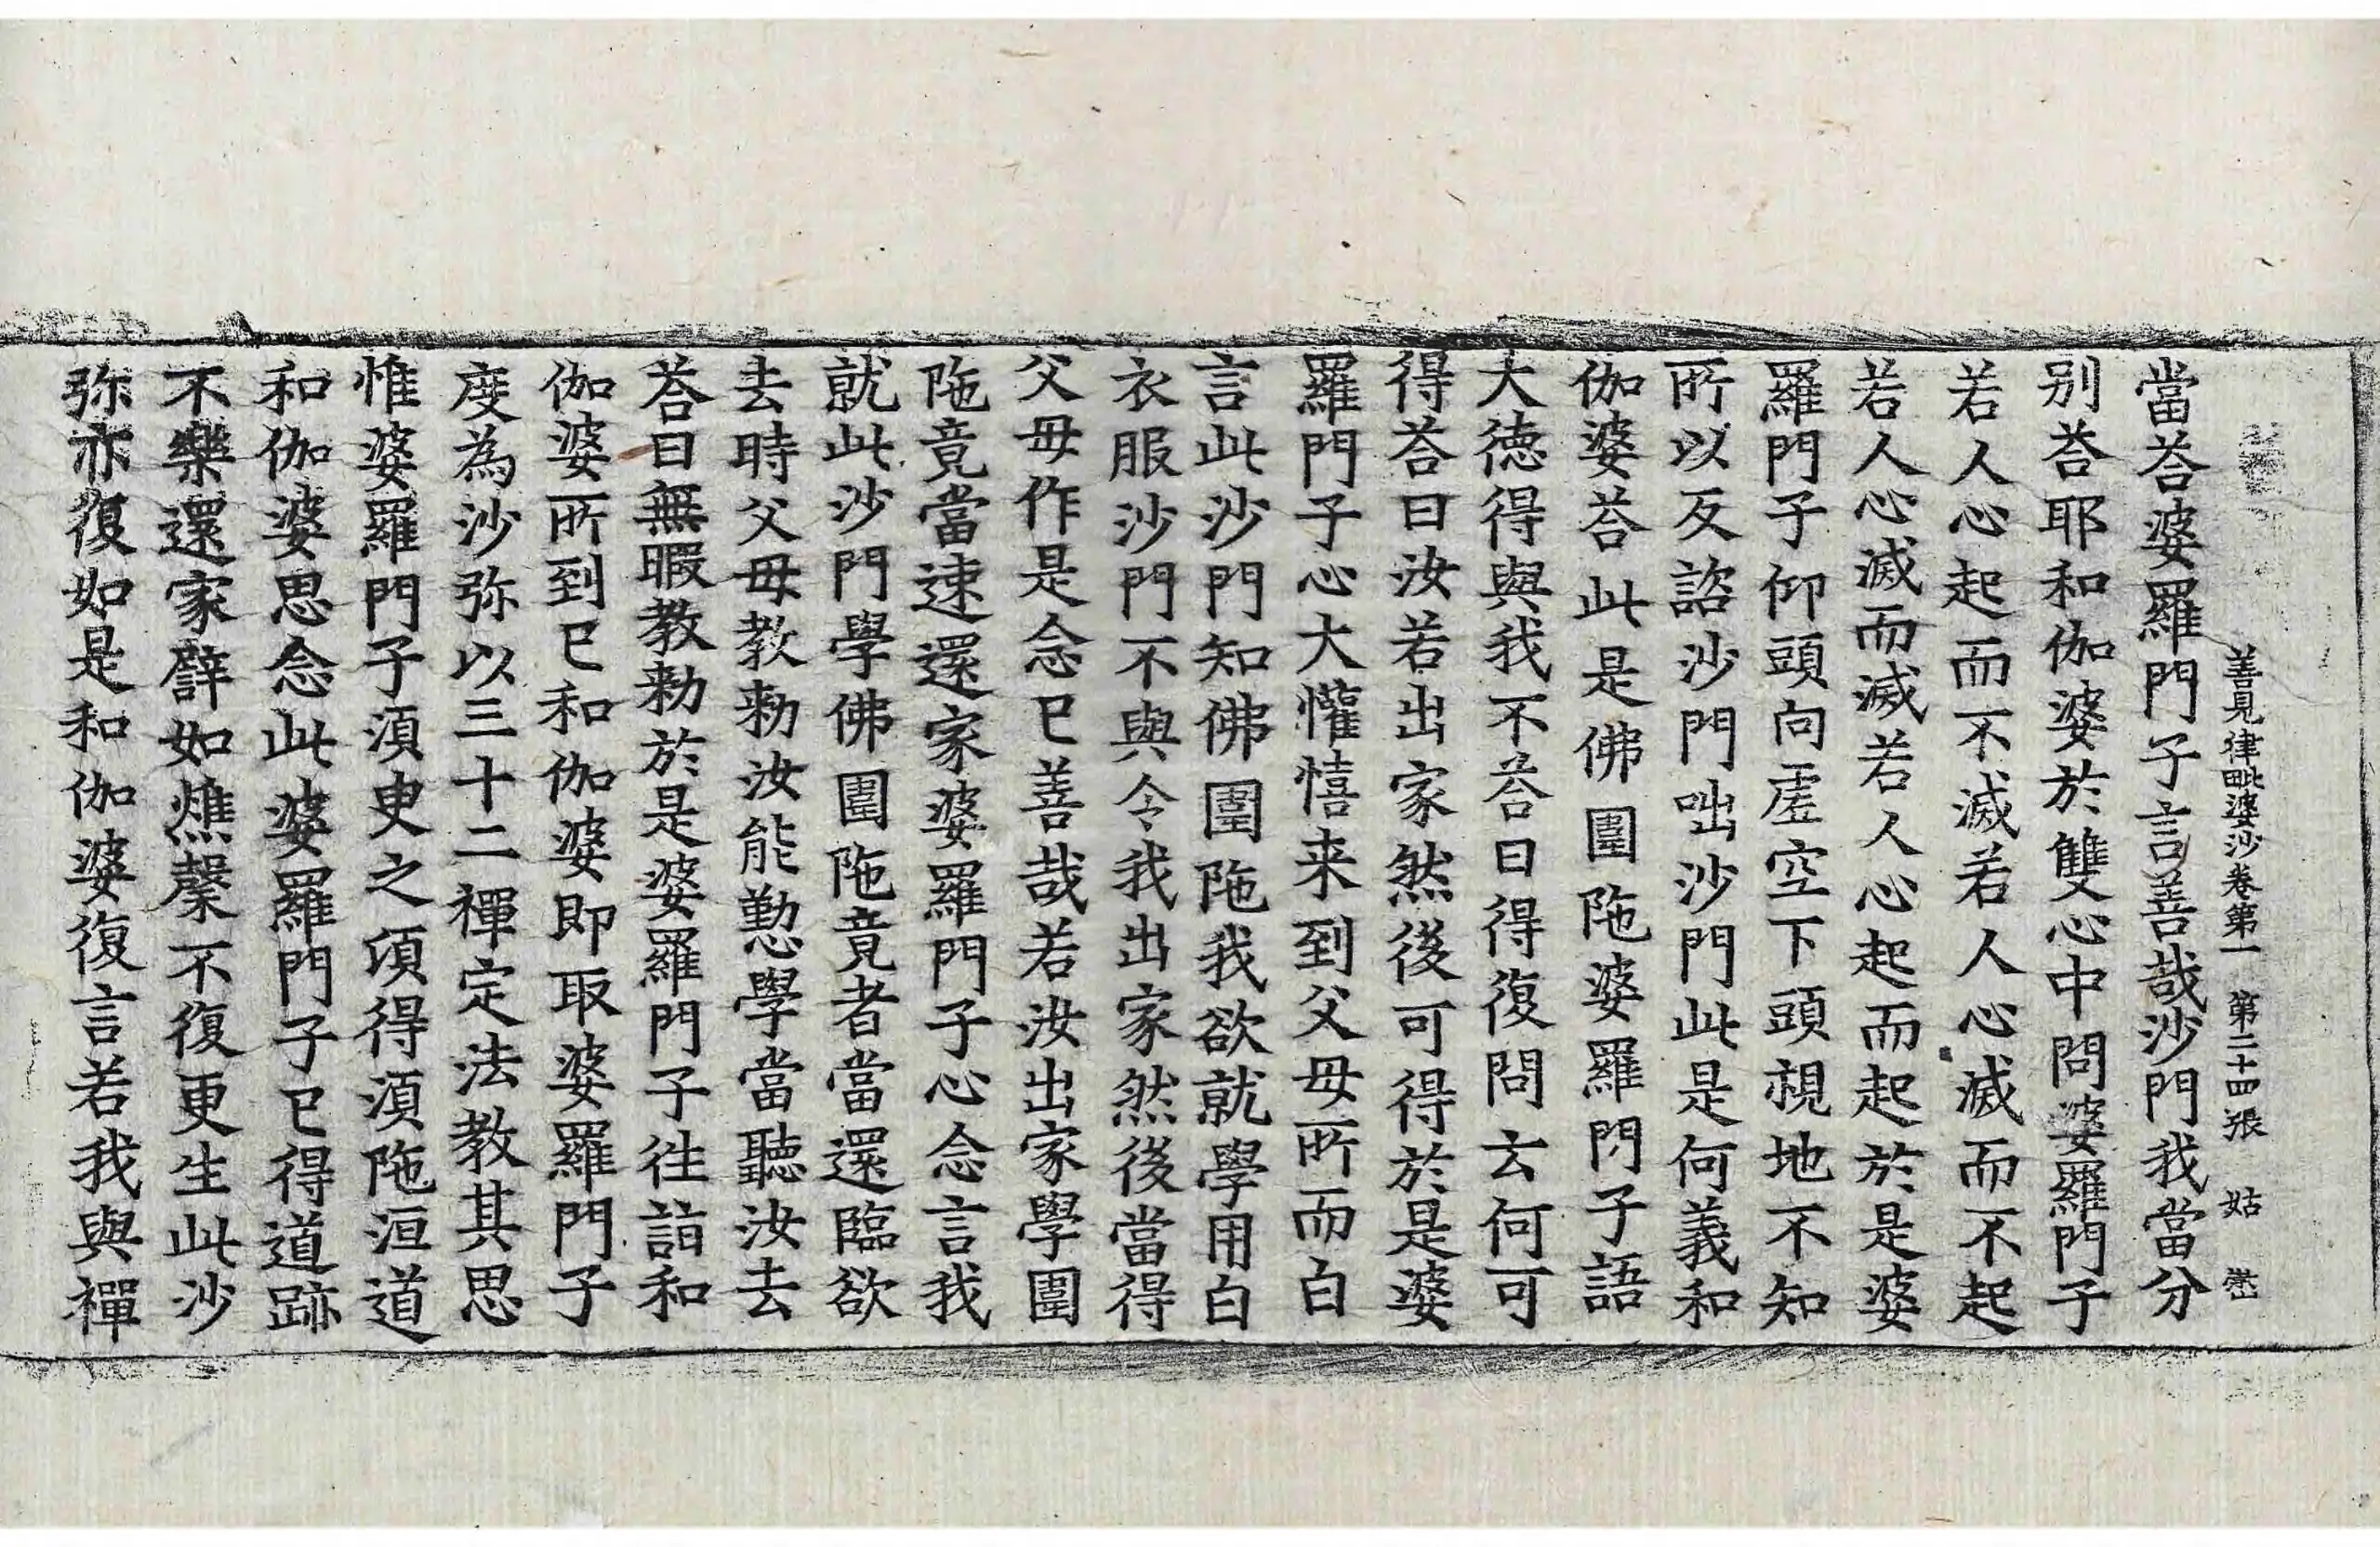 善見律毗婆沙卷第一　第二十四張　姑
當荅婆羅門子言善哉沙門我當分
別荅耶和伽婆於雙心中問婆羅門子
若人心起而不滅若人心滅而不起
若人心滅而滅若人心起而起於是婆
羅門子仰頭向虛空下頭視地不知
所以反諮沙門咄沙門此是何義和
伽婆荅此是佛圍陁婆羅門子語
大德得與我不荅曰得復問云何可
得荅曰汝若出家然後可得於是婆
羅門子心大懽憘来到父母所而白
言此沙門知佛圍陁我欲就學用白
衣服沙門不與令我出家然後當得
父母作是念已善哉若汝出家學圍
陁竟當速還家婆羅門子心念言我
就此沙門學佛圍陁竟者當還臨欲
去時父母教勑汝能懃學當聽汝去
荅曰無暇教勑於是婆羅門子往詣和
伽婆所到已和伽婆即取婆羅門子
度為沙弥以三十二禪定法教其思
惟婆羅門子湏臾之頃得湏陁洹道
和伽婆思念此婆羅門子已得道跡
不樂還家譬如燋糵不復更生此沙
弥亦復如是和伽婆復言若我與禪